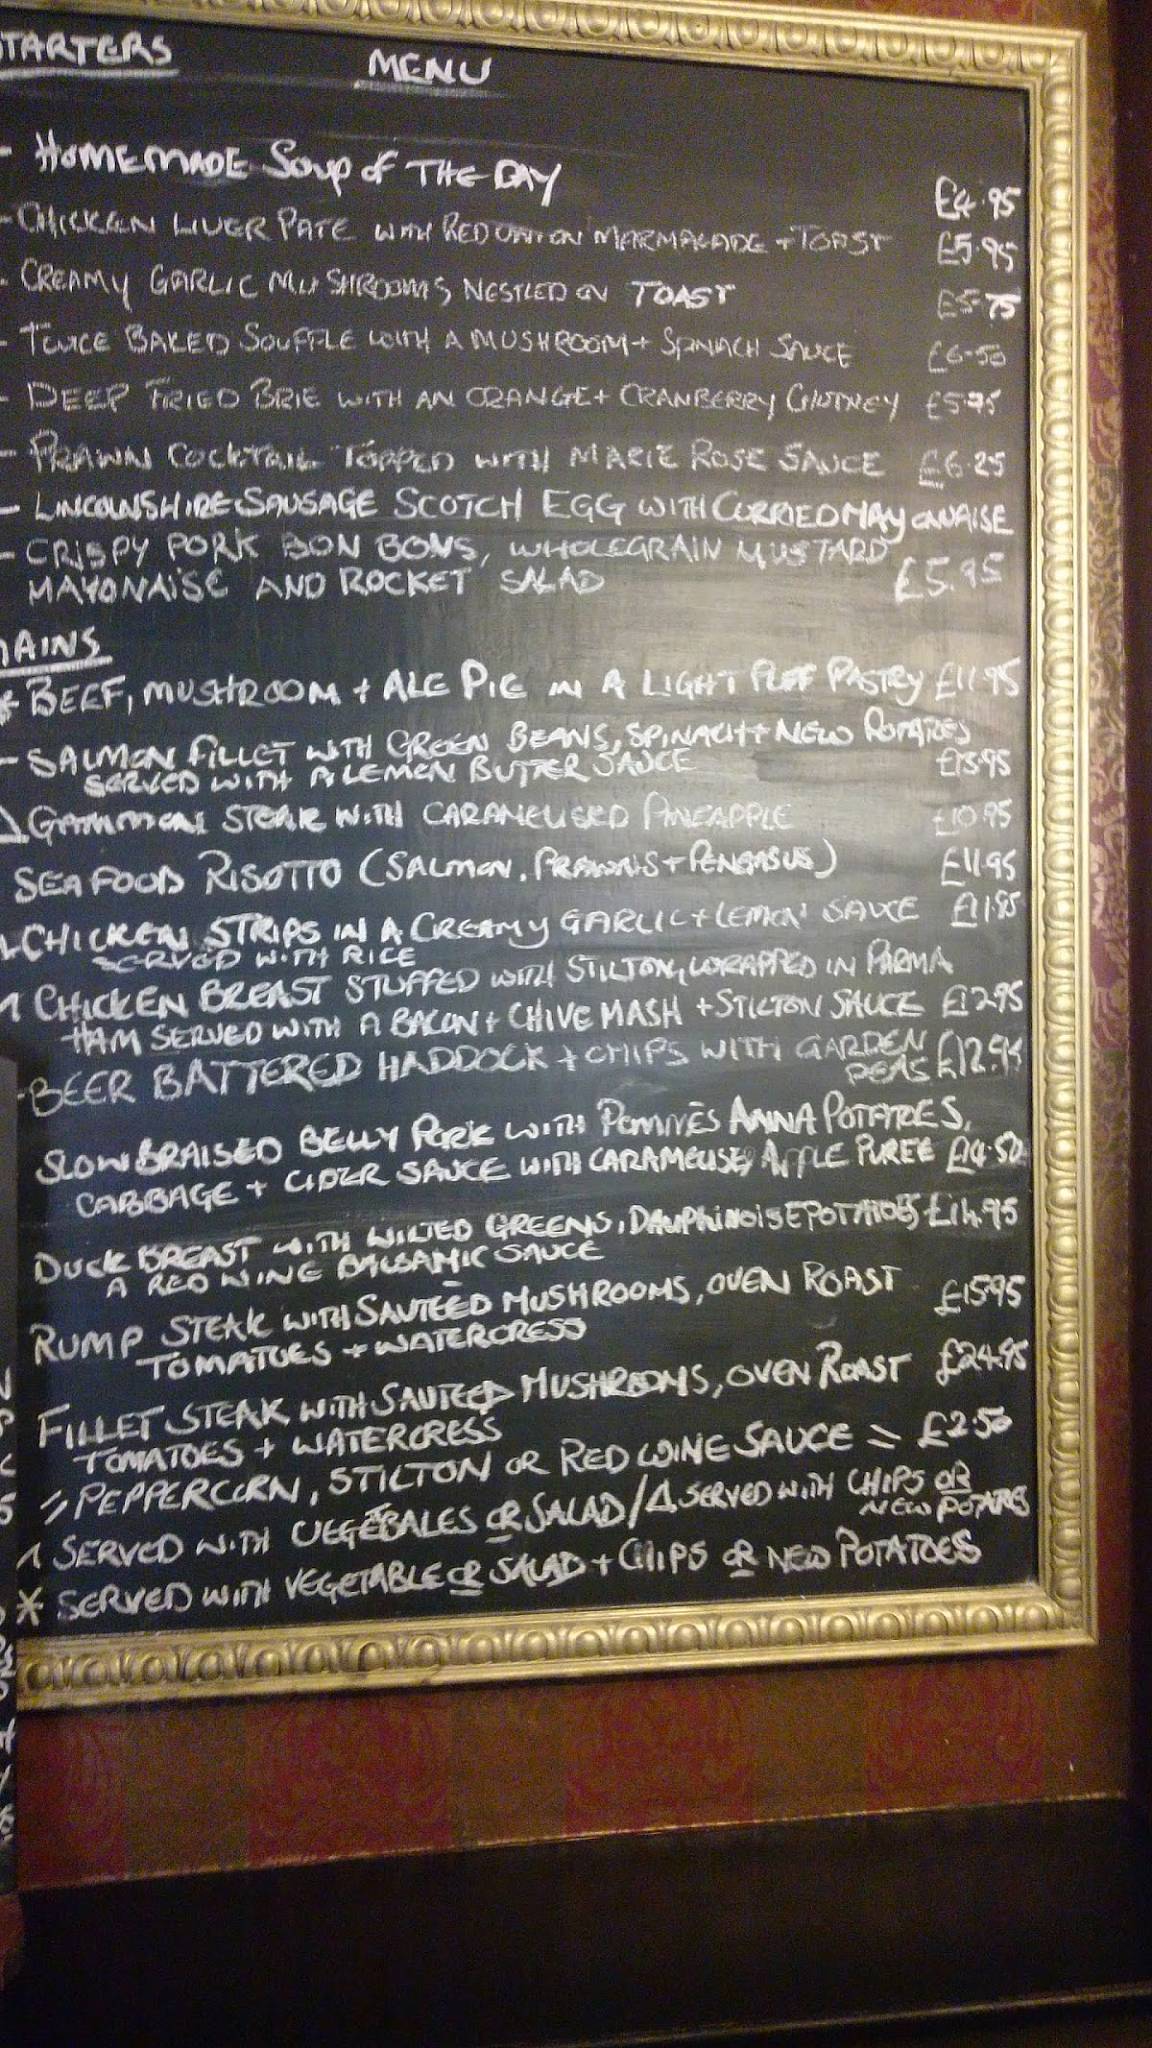 STARTERS MENU
- HOMEMADE SOUP OF THE DAY £4.95
- CHICKEN LIVER PATE WITH RED ONION MARMALADE + TOAST £5.95
- CREAMY GARLIC MUSHROOMS NESTLED ON TOAST £5.75
- TWICE BAKED SOUFFLE WITH A MUSHROOM + SPINACH SAUCE £6.50
- DEEP FRIED BRIE WITH AN ORANGE + CRANBERRY CHUTNEY £5.75
- PRAWN COCKTAIL TOPPED WITH MARIE ROSE SAUCE £6.25
- LINCOLNSHIRE SAUSAGE SCOTCH EGG WITH CURRIED MAYONAISE
- CRISPY PORK BON BONS, WHOLEGRAIN MUSTARD
MAYONAISE AND ROCKET SALAD £5.95
MAINS
* BEEF, MUSHROOM + ALE PIE IN A LIGHT PUFF PASTRY £11.95
- SALMON FILLET WITH GREEN BEANS, SPINACH + NEW POTATOES
SERVED WITH A LEMON BUTTER SAUCE £13.95
Δ GAMMON STEAK WITH CARAMELISED PINEAPPLE £10.95
SEAFOOD RISOTTO (SALMON, PRAWNS + PENGASUS) £11.95
CHICKEN STRIPS IN A CREAMY GARLIC + LEMON SAUCE £11.95
SERVED WITH RICE
^ CHICKEN BREAST STUFFED WITH STILTON, WRAPPED IN PARMA
HAM SERVED WITH A BACON + CHIVE MASH + STILTON SAUCE £12.95
- BEER BATTERED HADDOCK + CHIPS WITH GARDEN
PEAS
SLOW BRAISED BELLY PORK WITH POMMES ANNA POTATOES,
CABBAGE + CIDER SAUCE WITH CARAMELISED APPLE PUREE £14.50
DUCK BREAST WITH WILTED GREENS, DAUPHINOISE POTATOES £14.95
A RED WINE BALSAMIC SAUCE
RUMP STEAK WITH SAUTEED MUSHROOMS, OVEN ROAST £15.95
TOMATOES + WATERCRESS
FILLET STEAK WITH SAUTEED MUSHROOMS, OVEN ROAST £24.95
TOMATOES + WATERCRESS
= PEPPERCORN, STILTON OR RED WINE SAUCE = £2.50
^ SERVED WITH VEGEBALES OR SALAD / Δ SERVED WITH CHIPS OR
NEW POTATOES
* SERVED WITH VEGETABLE OR SALAD + CHIPS OR NEW POTATOES